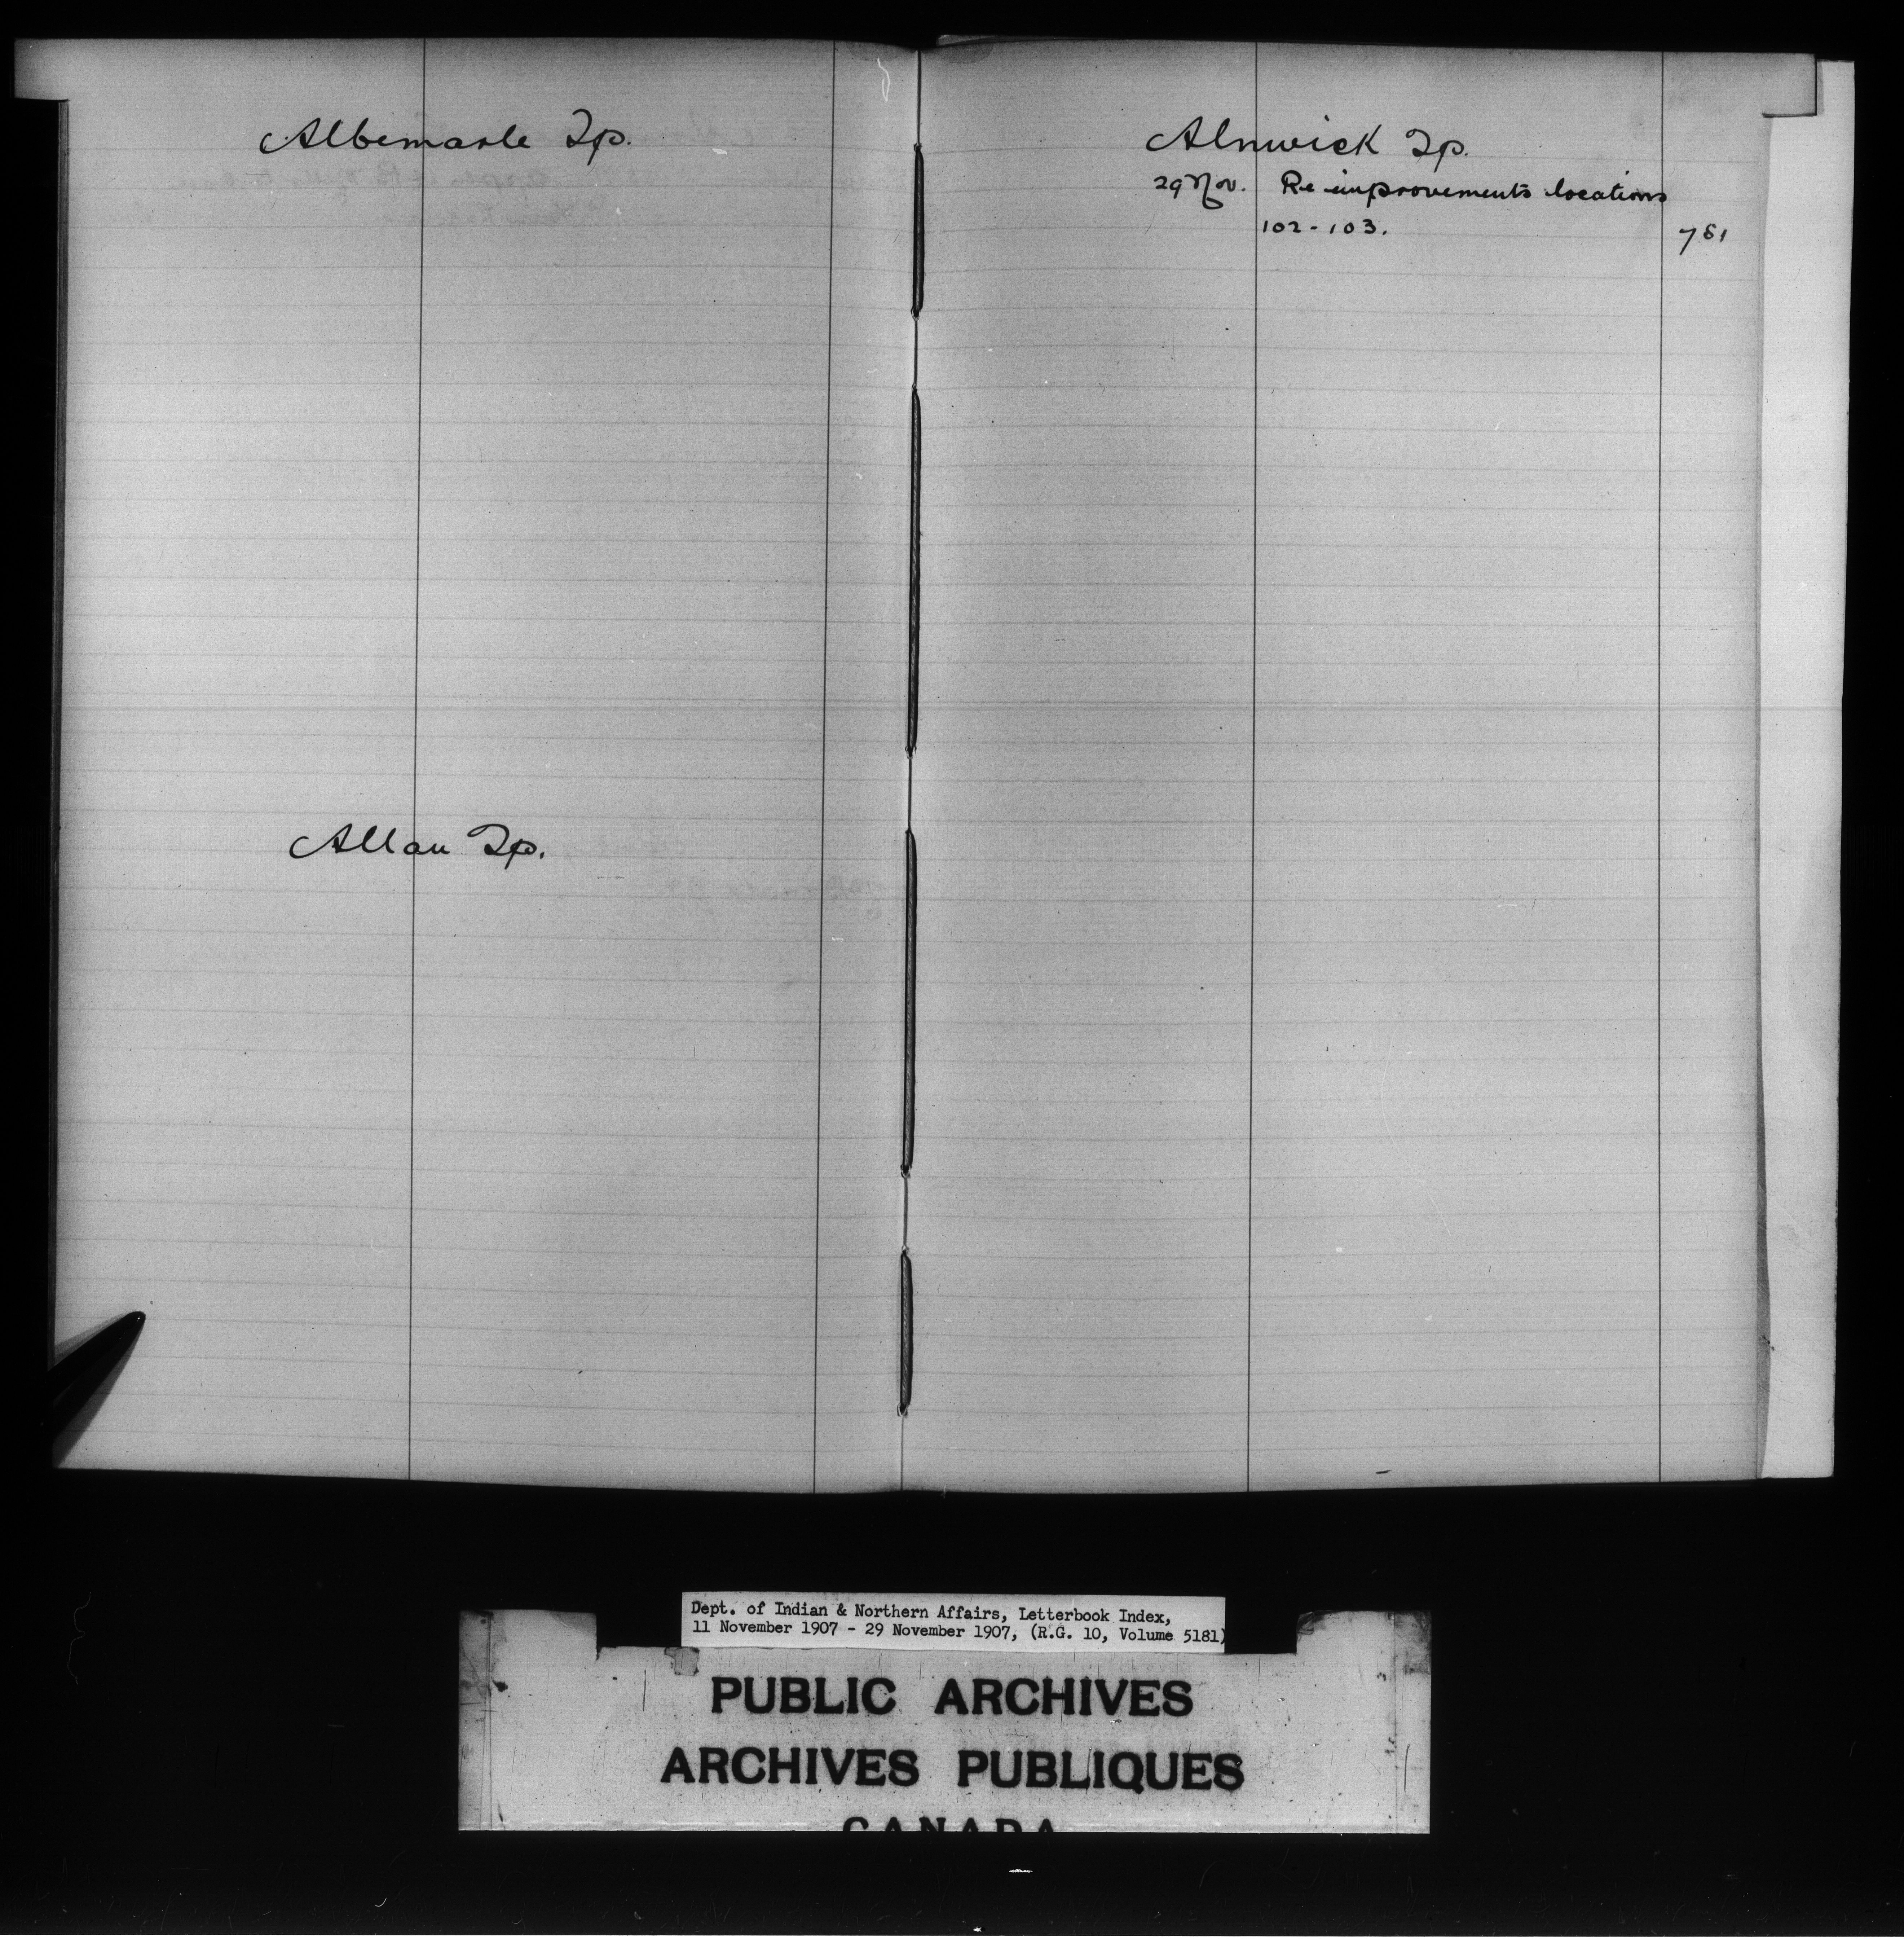 Albemarle Tp.
Allan Tp.
Alnwick Tp.
29 Nov. Re improvements locations
102-103. 781
Dept. of Indian & Northern Affairs, Letterbook Index,
11 November 1907 - 29 November 1907, (R.G. 10, Volume 5181)
PUBLIC ARCHIVES
ARCHIVES PUBLIQUES
CANADA